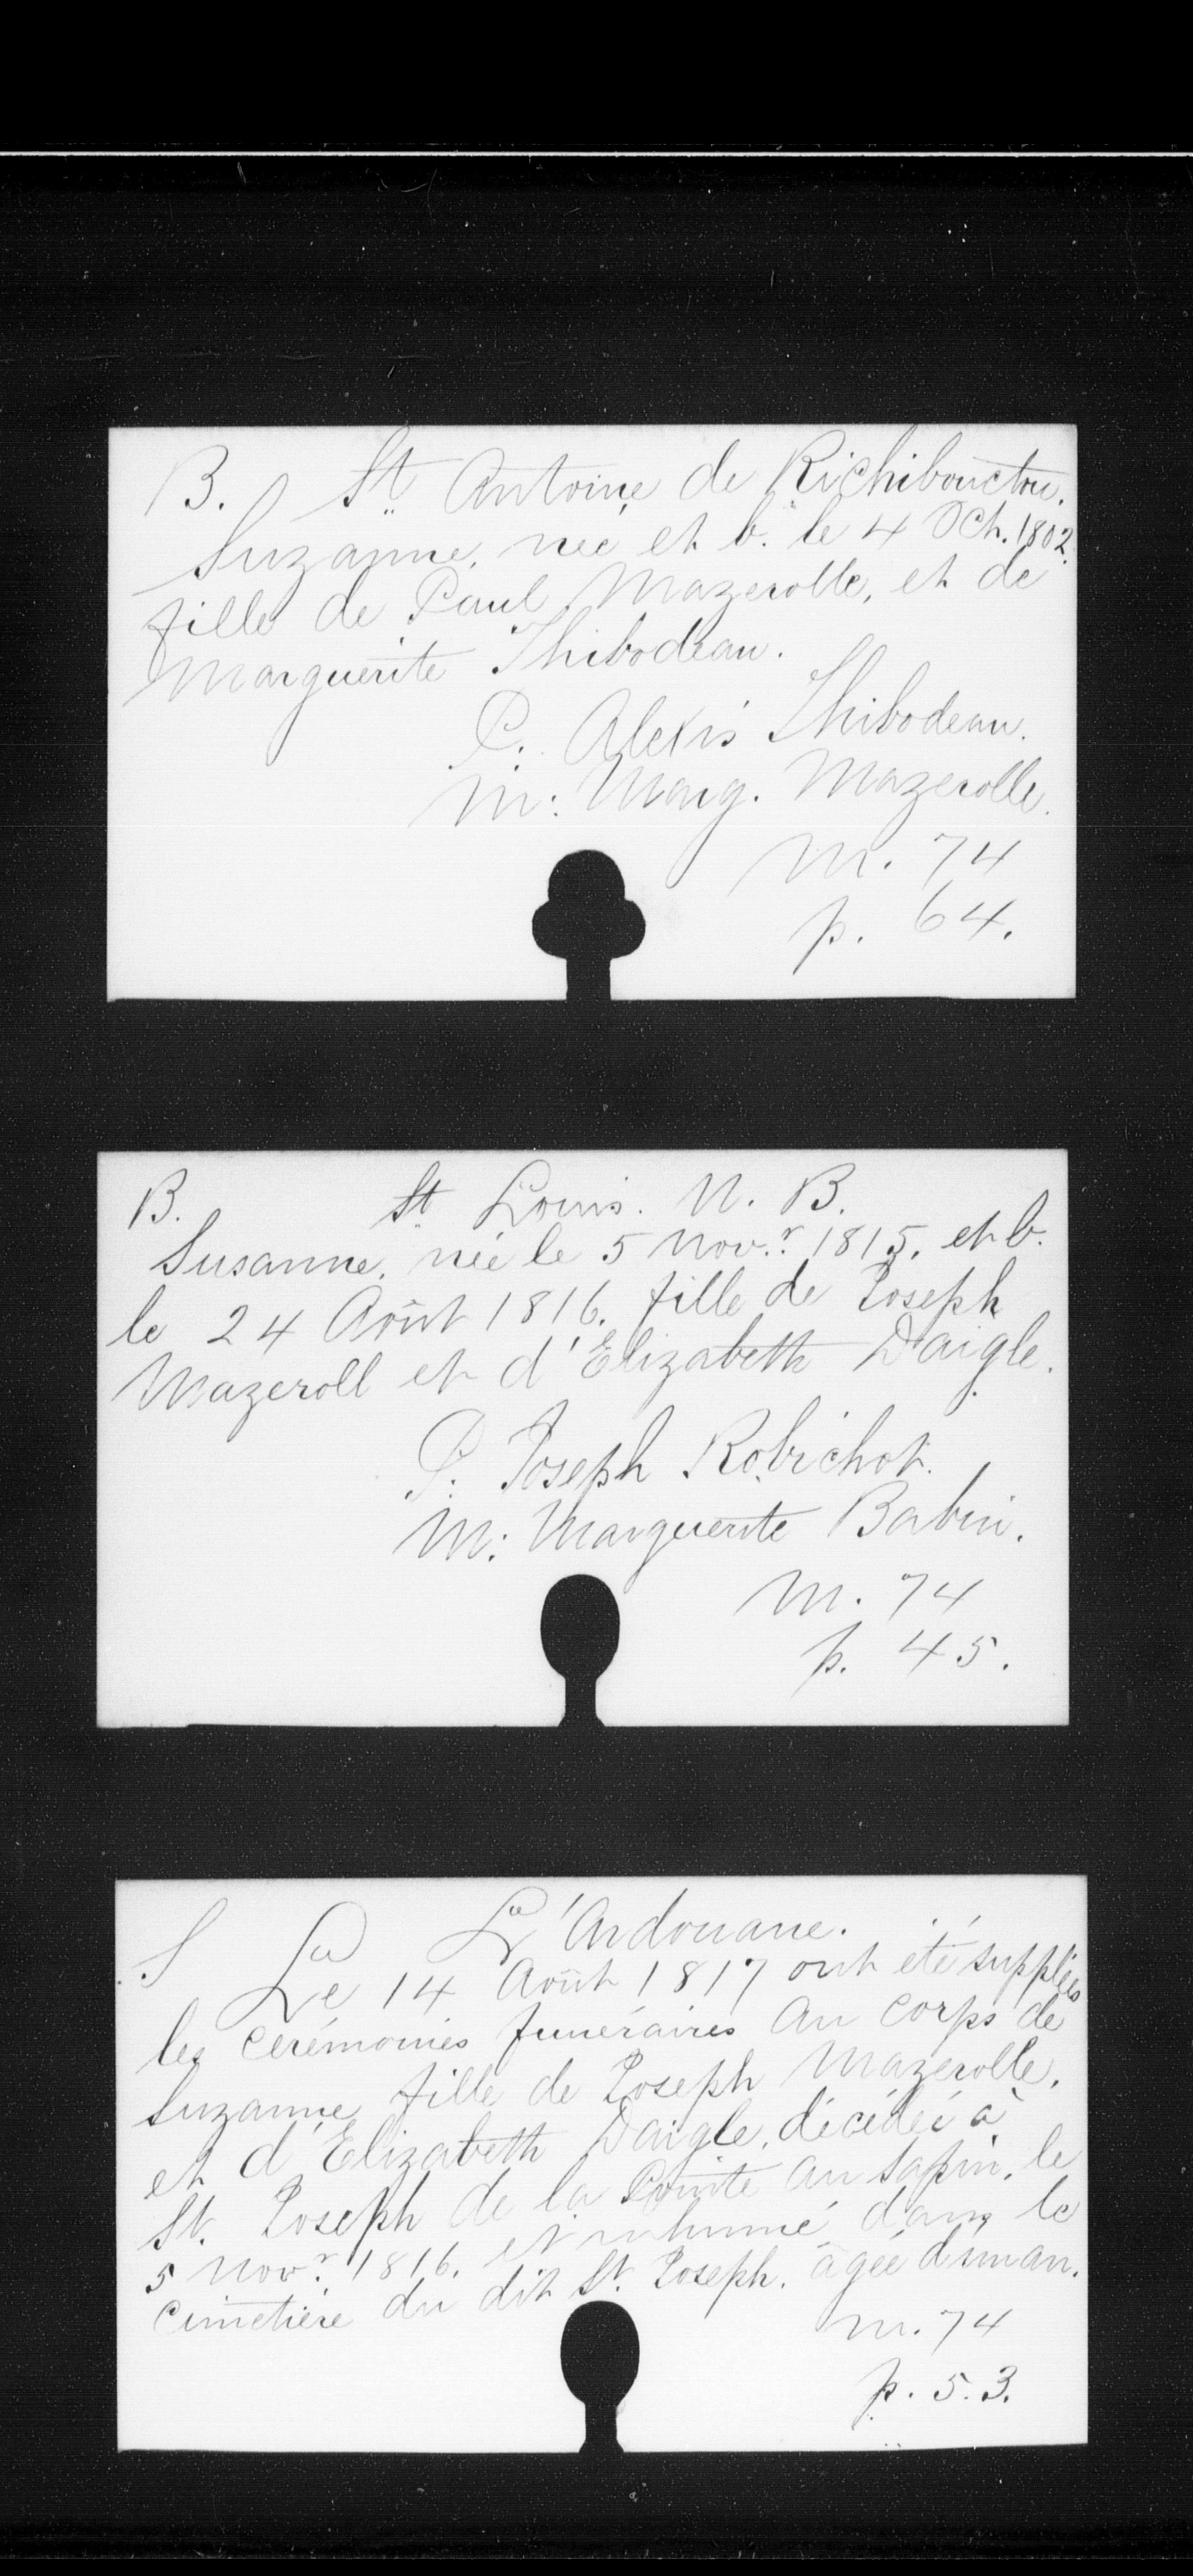 B. St Antoine de Richibouctou.
Suzanne, née et b. le 4 Oct. 1802.
fille de Paul Mazerolle, et de
Marguerite Thibodeau.
P. Alexis Thibodeau.
M: Marg. Mazerolle.
M. 74
p. 64.
B. St Louis. N. B.
Susanne, née le 5 Nov.r 1815, et b.
le 24 Août 1816. fille de Joseph
Mazeroll et d'Elizabeth Daigle.
P. Joseph Robichot.
M: Marguerite Babin.
M. 74
p. 45.
S L'Ardouane.
Le 14 Août 1817 ont été suppliés
les cerémonies funéraires au corps de
Suzanne fille de Joseph Mazerolle,
et d'Elizabeth Daigle, décédée à
St. Joseph de la Pointe au Sapin, le
5 Nov.r 1816. et inhumé dans le
cimetière du dit St. Joseph. âgée d'un an.
m. 74
p. 53.